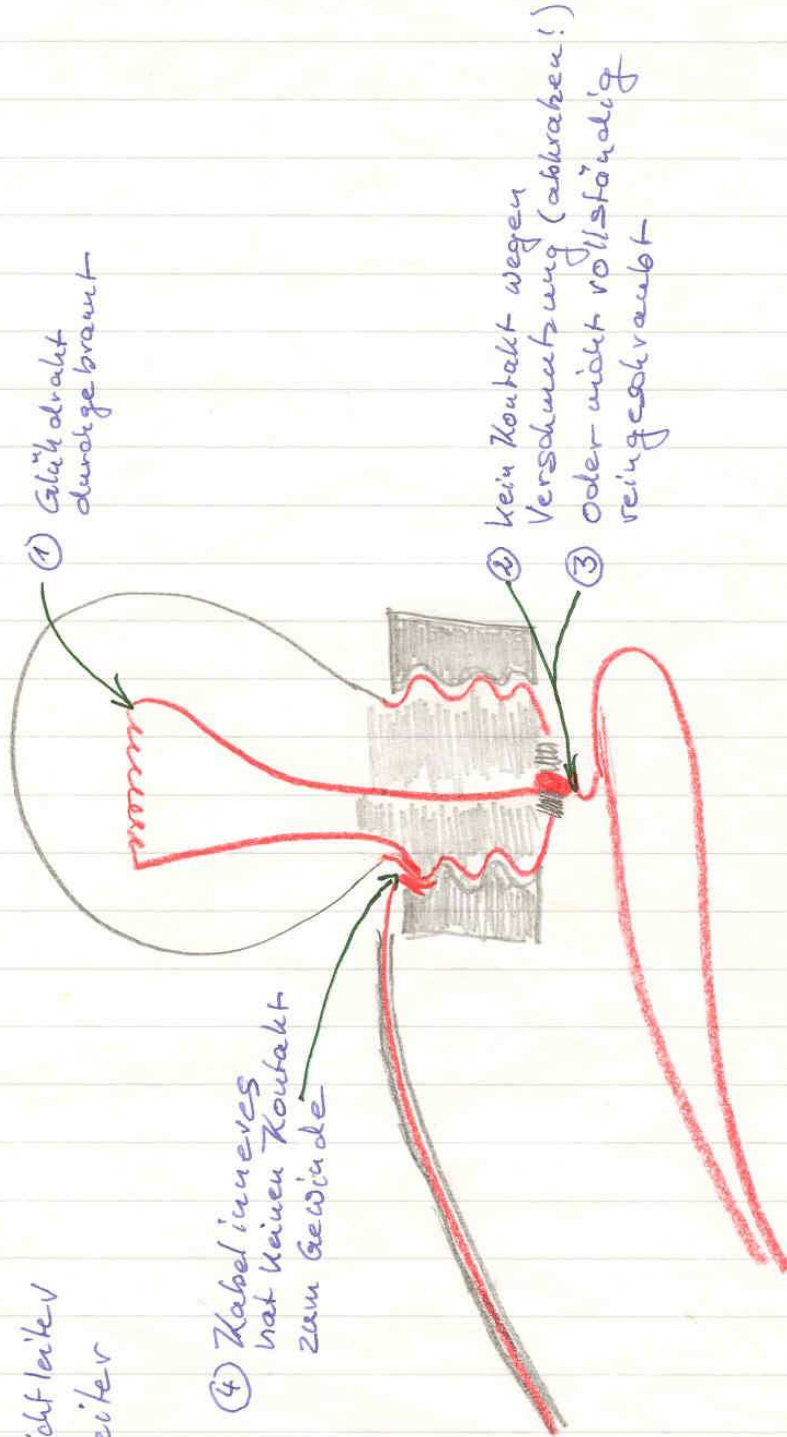 ① Glühdraht
durchgebrannt
② kein Kontakt wegen
Verschmutzung (abkratzen!)
③ Oder nicht vollständig
reingeschraubt
④ Kabelinneres
hat keinen Kontakt
zum Gewinde